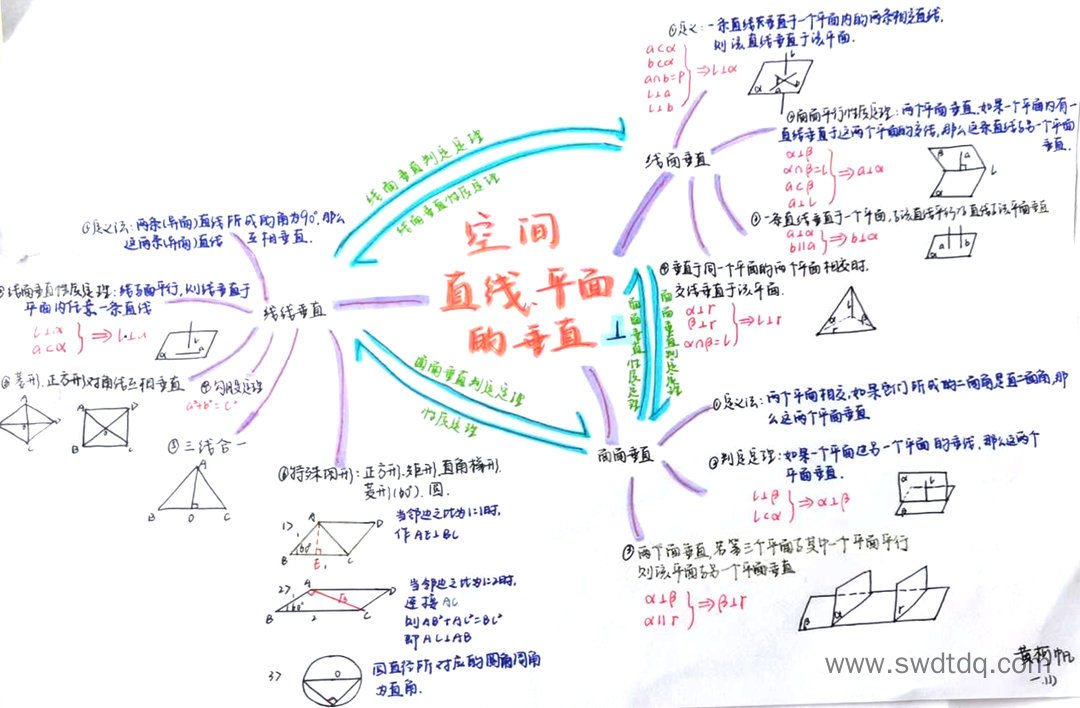 空间
直线、平面
的垂直
⊥
线面垂直判定定理
线面垂直性质定理
面面垂直判定定理
性质定理
面面垂直性质定理
面面垂直判定定理
线面垂直
①定义:一条直线垂直于一个平面内的两条相交直线.
则该直线垂直于该平面.
a⊂α
b⊂α
a∩b=P
l⊥a
l⊥b
⇒l⊥α
②面面平行性质定理:两个平面垂直.如果一个平面内有一
直线垂直于这两个平面的交线,那么这条直线与另一个平面
垂直.
α⊥β
α∩β=l
a⊂β
a⊥l
⇒a⊥α
③一条直线垂直于一个平面,与该直线平行的直线与该平面垂直
a⊥α
b∥a
⇒b⊥α
④垂直于同一个平面的两个平面相交时.
交线垂直于该平面.
α⊥r
β⊥r
α∩β=l
⇒l⊥r
面面垂直
①定义法:两个平面相交,如果它们所成的二面角是直二面角,那
么这两个平面垂直
②判定定理:如果一个平面过另一个平面的垂线,那么这两个
平面垂直.
l⊥β
l⊂α
⇒α⊥β
③两个面垂直,若第三个平面与其中一个平面平行
则该平面与另一个平面垂直
α⊥β
α∥r
⇒β⊥r
线线垂直
①定义法:两条(异面)直线所成的角为90°,那么
这两条(异面)直线 互相垂直.
②线面垂直性质定理:线与面平行,则线垂直于
平面内任意一条直线
l⊥α
a⊂α
⇒l⊥a
③菱形、正方形对角线互相垂直
④勾股定理
a²+b²=c²
⑤三线合一
A
B
D
C
⑥特殊图形:正方形.矩形.直角梯形.
菱形(60°).圆.
1>
A
D
60°
B
E
C
当邻边之比为1:1时.
作AE⊥BC
2>
A
D
60°
√3
B
2
C
当邻边之比为1:2时.
连接AC
则AB²+AC²=BC²
即AC⊥AB
3>
O
圆直径所对应的圆角周角
为直角.
www.swdtdq.com